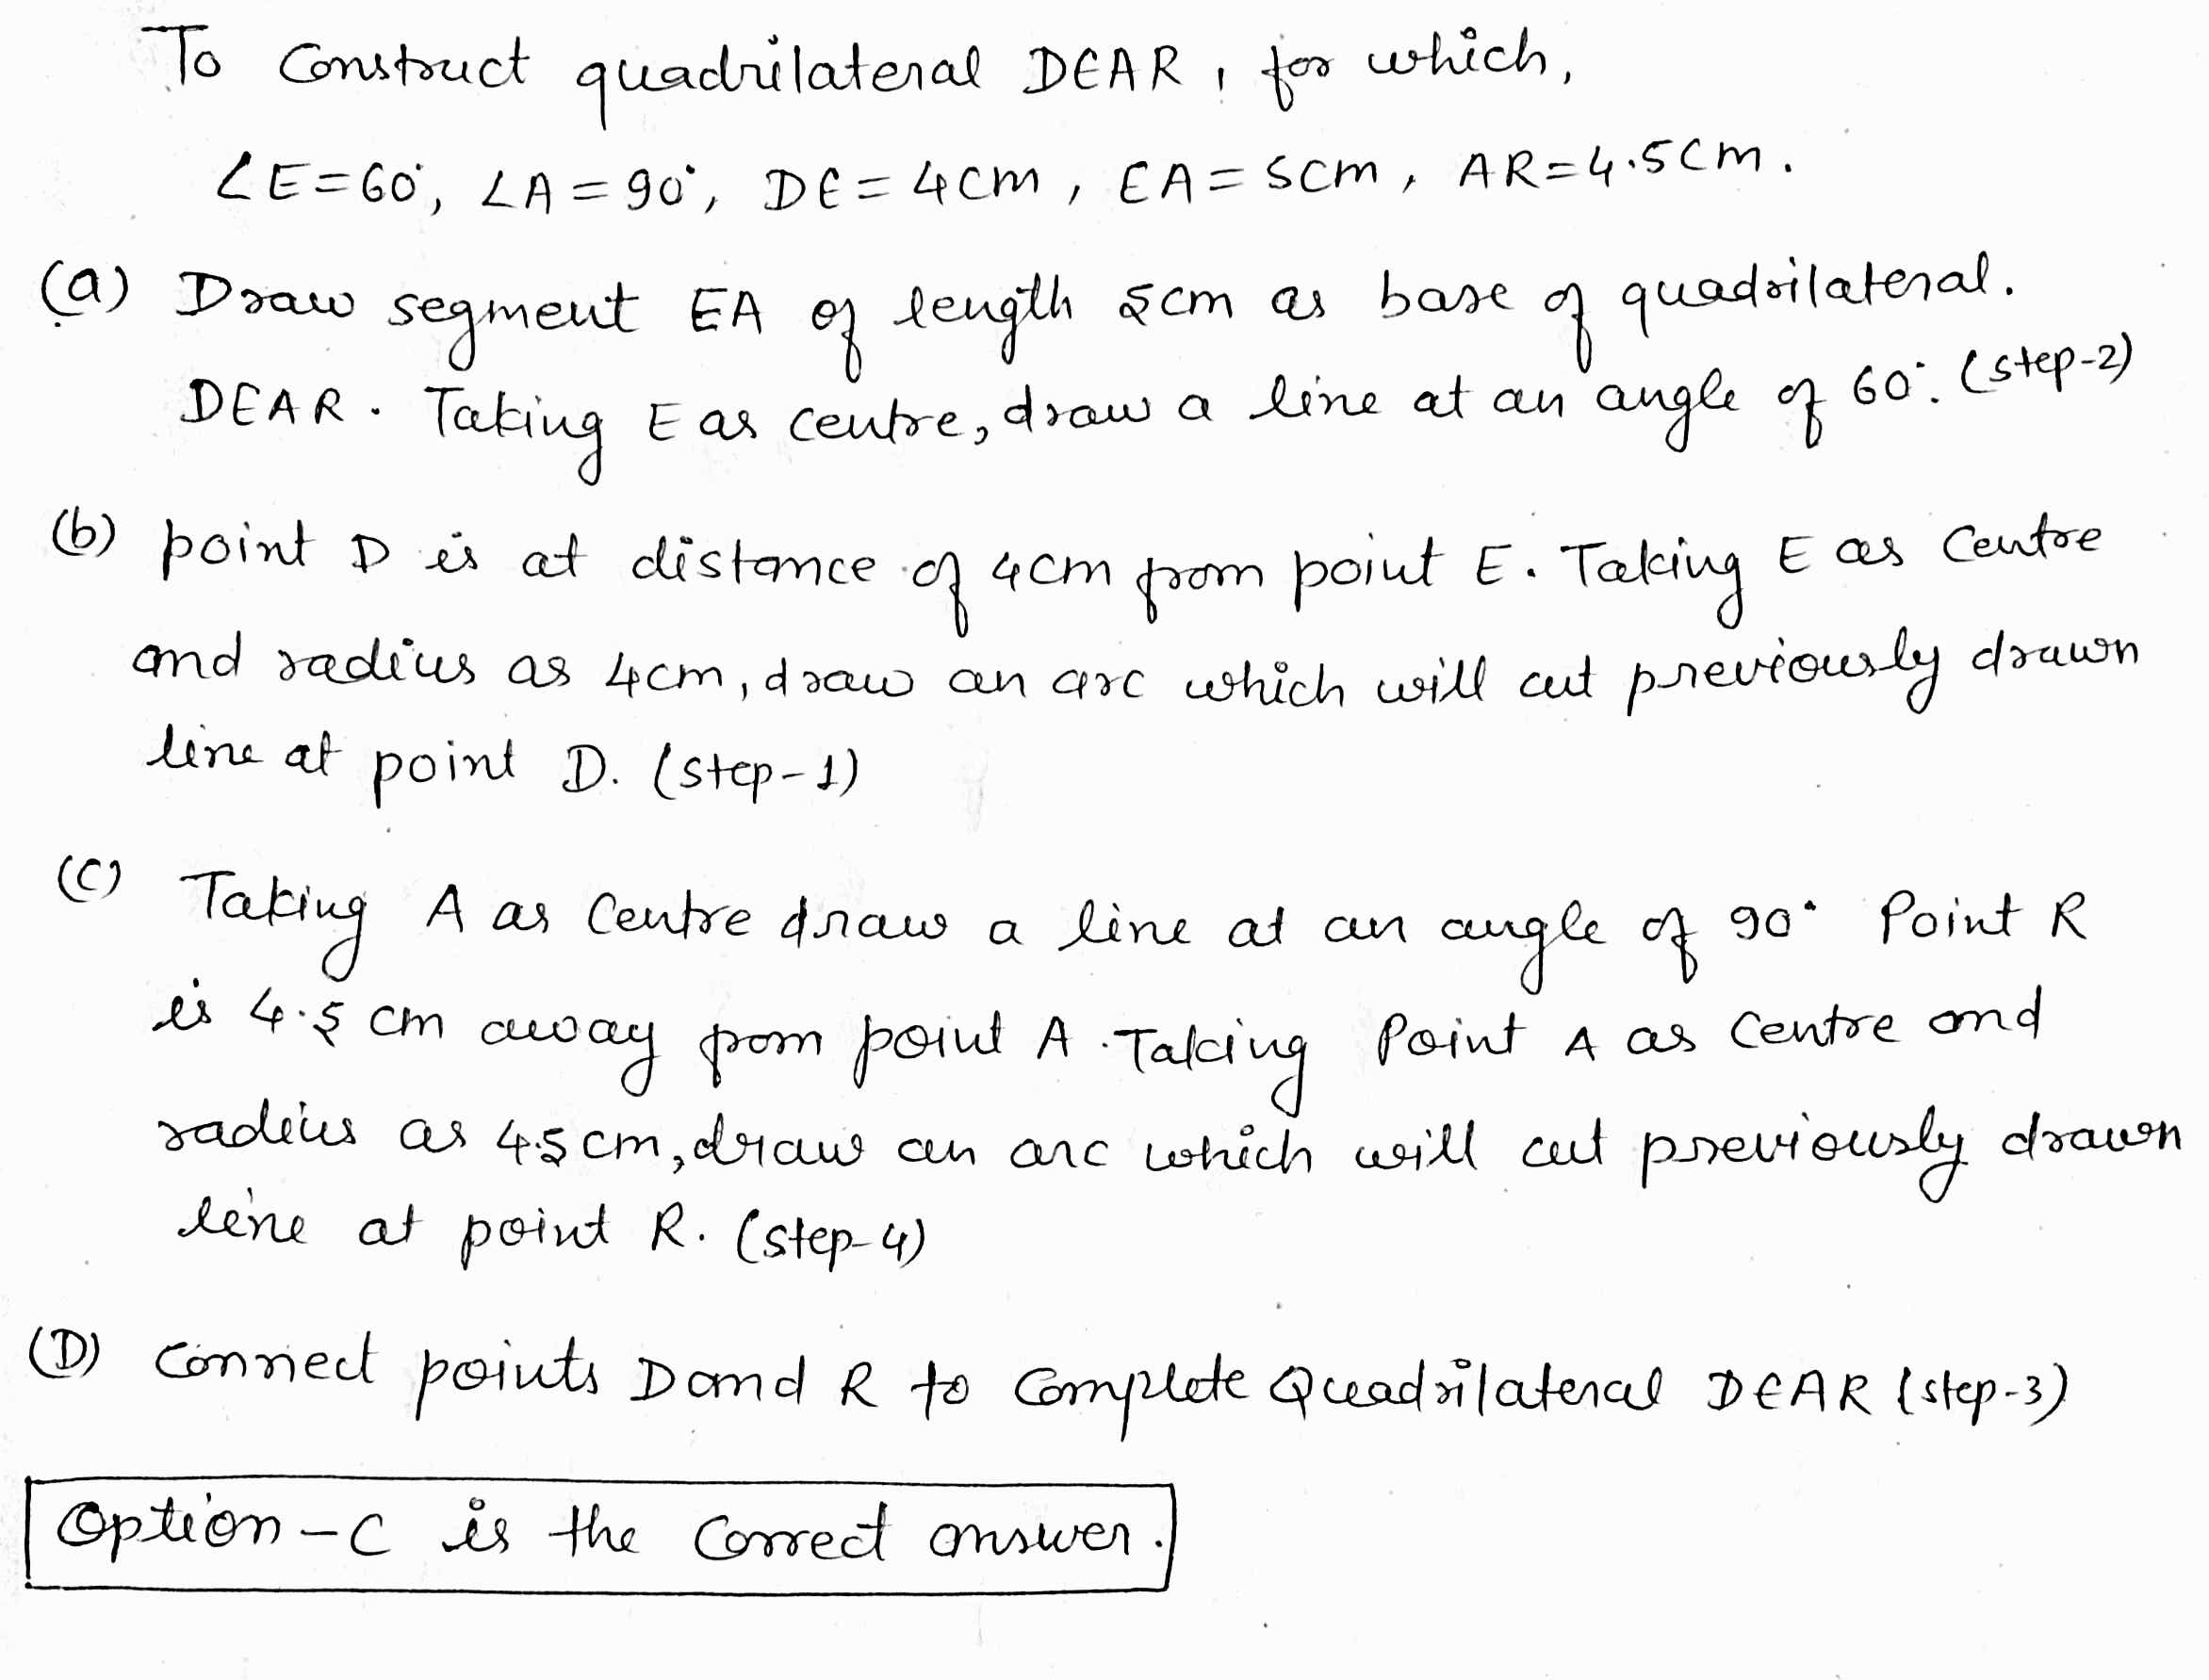 To Construct quadrilateral DEAR, for which,
∠E=60°, ∠A=90°, DE=4cm, EA=5cm, AR=4.5cm.
(a) Draw segment EA of length 5cm as base of quadrilateral.
DEAR. Taking E as centre, draw a line at an angle of 60°. (step-2)
(b) point D is at distance of 4cm from point E. Taking E as Centre
and radius as 4cm, draw an arc which will cut previously drawn
line at point D. (step-1)
(C) Taking A as Centre draw a line at an angle of 90° Point R
is 4.5 cm away from point A. Taking Point A as Centre and
radius as 4.5cm, draw an arc which will cut previously drawn
line at point R. (step-4)
(D) connect points D and R to Complete Quadrilateral DEAR (step-3)
Option-C is the Correct answer.